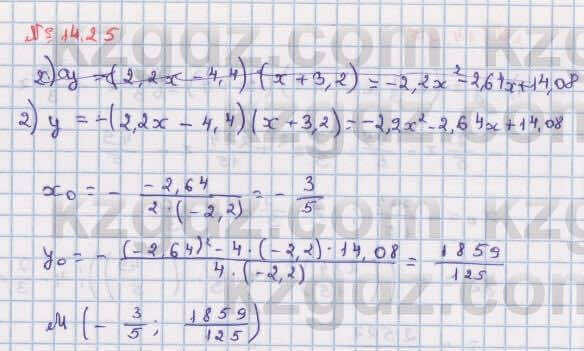 № 14.25
2) y = -(2,2x - 4,4) (x + 3,2) = -2,2x² - 2,64x + 14,08
2) y = -(2,2x - 4,4) (x + 3,2) = -2,2x² - 2,64x + 14,08
x₀ = - \frac{-2,64}{2·(-2,2)} = - \frac{3}{5}
y₀ = - \frac{(-2,64)² - 4·(-2,2)·14,08}{4·(-2,2)} = \frac{1859}{125}
M (- \frac{3}{5}; \frac{1859}{125})
kzgdz.com